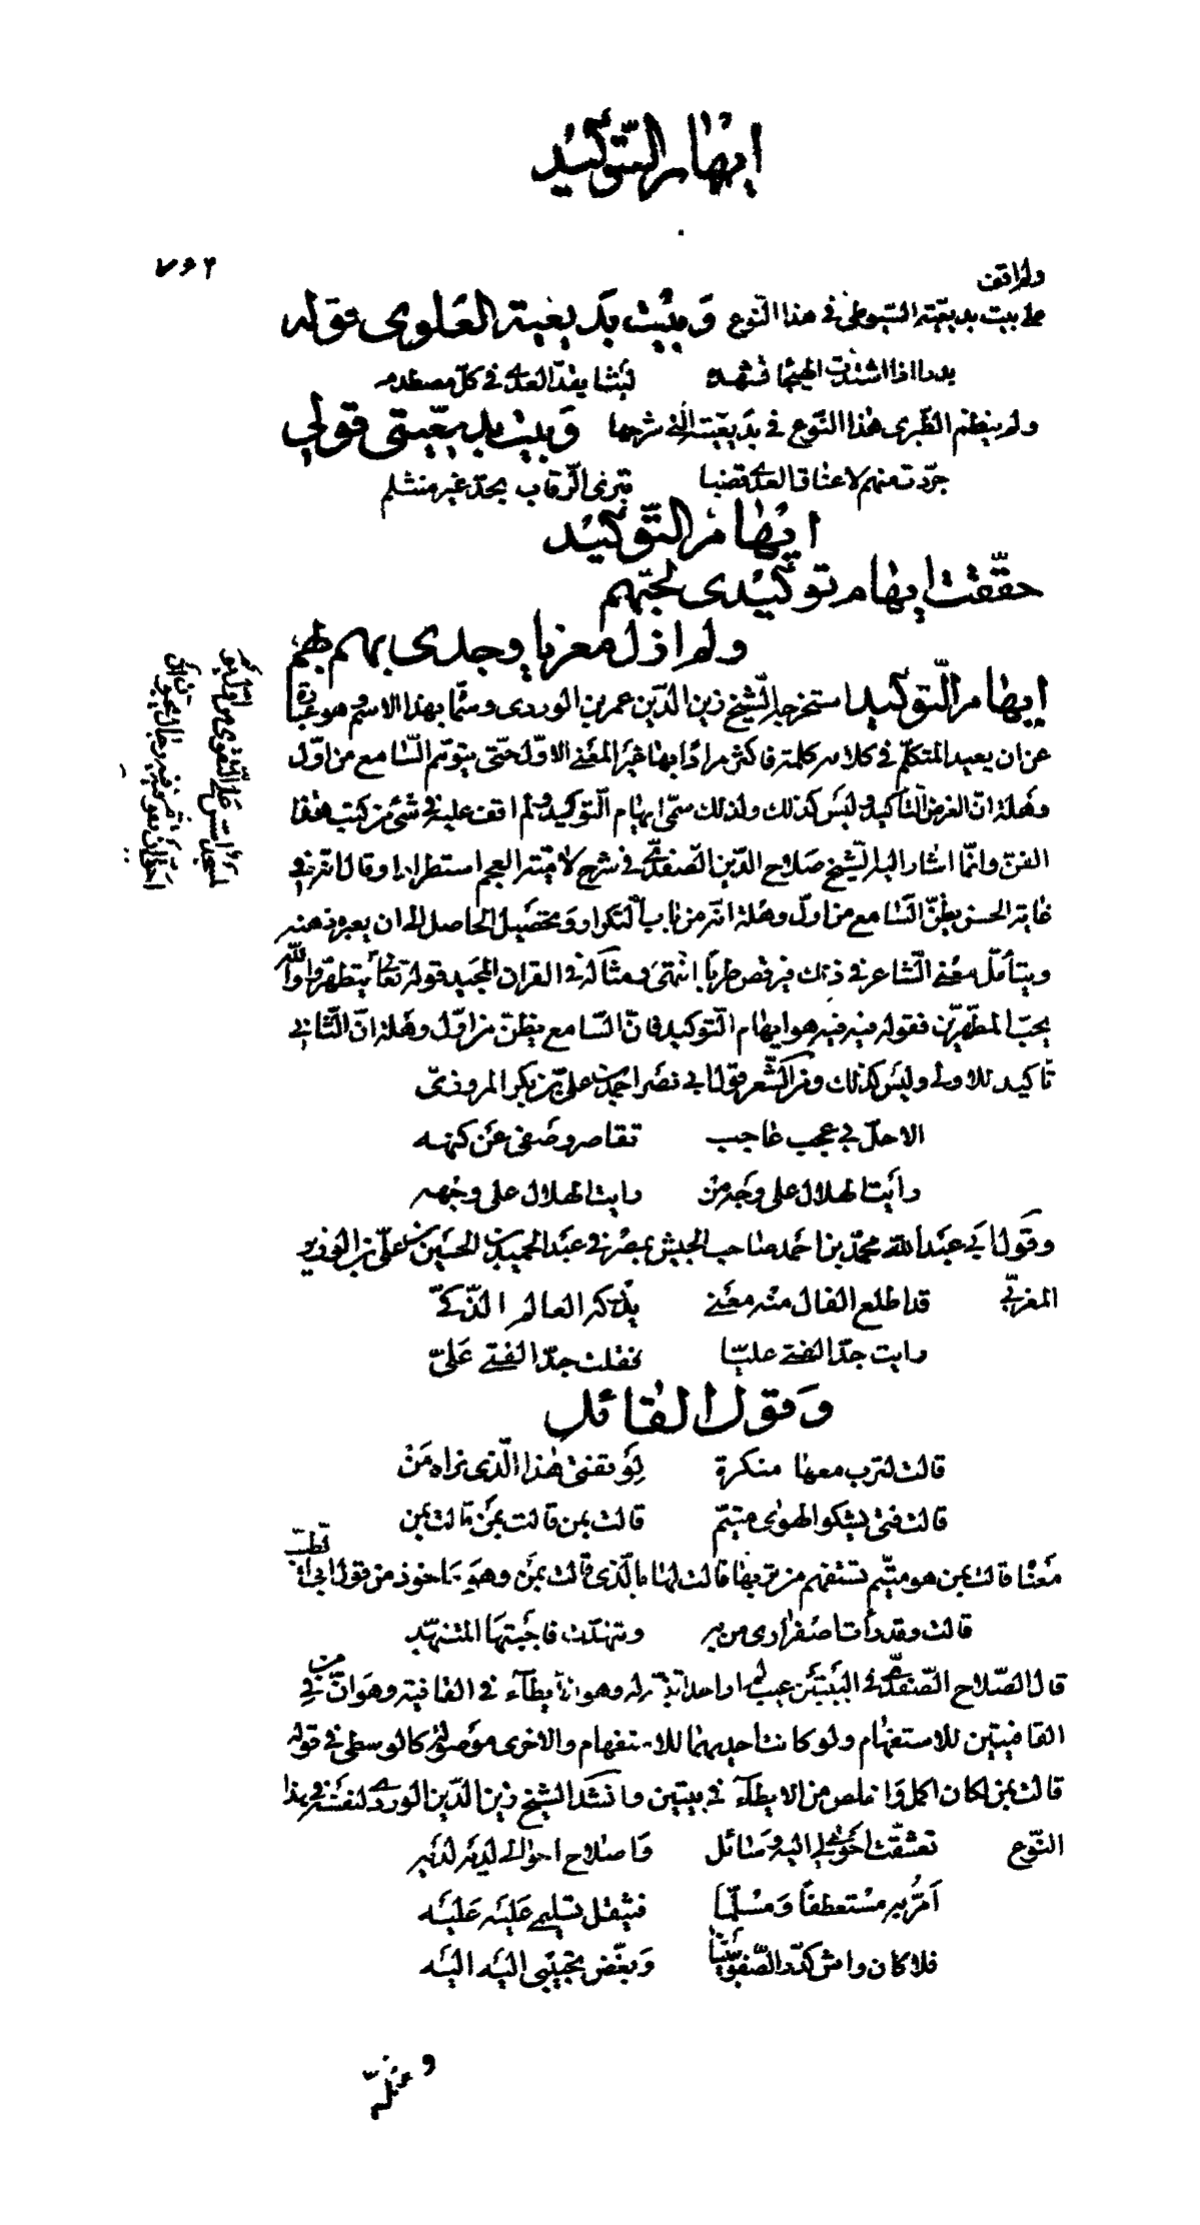 ايهام التوكيد
٧٦٢
ولم اقف
على بيت بديعية السيوطي في هذا النوع وبيت بديعية العلوي قوله
بدرا اذا اشتدت الهيجا فتهم ليثا يقد العدى في كل مصطدم
ولم ينظم الطبري هذا النوع في بديعيته التي شرحها وبيت بديعيتي قولي
جردت منهم لاعناق العدى قضبا تبري الرقاب بحد غير منثلم
ايهام التوكيد
حققت ايهام توكيدي لحبهم
ولم ازل مغريا وجدي بهم بهم
ايهام التوكيد استخرجه الشيخ زين الدين عمر بن الوردى وسماه بهذا الاسم وهو عبارة
عن ان يعيد المتكلم في كلامه كلمة فاكثر مرادا بها غير المعنى الاول حتى يتوهم السامع من اول
وهلة ان الغرض التاكيد وليس كذلك ولذلك سمي ايهام التوكيد ولم اقف عليه في شيء من كتب هذا
الفن وانما اشار اليه الشيخ صلاح الدين الصفدي في شرح لامية العجم استطرادا وقال انه في
غاية الحسن يظن السامع من اول وهلة انه من باب التكرار وتحصيل الحاصل الى ان يعبره ذهنه
ويتأمل معنى الشاعر في ذلك فيرقص طربا انتهى ومثاله في القران المجيد قوله تعالى
يتطهروا والله
يحب المطهرين فقوله فيه فيه هو ايهام التوكيد فان السامع يظن من اول وهلة ان الثاني
تاكيد للاولى وليس كذلك ومن الشعر قول ابي نصر احمد بن علي بن بكر المروذي
الا حل بي عجب عاجب تقاصر وصفي عن كنهه
رأيت الهلال على وجه من رايت الهلال على وجهه
وقول ابي عبد الله محمد بن احمد صاحب الجيش بمصر في عبد الحميد بن الحسين بن علي بن الوزير
المغربي قد اطلع الفال منه معنى يدركه العالم الذكي
رايت جد الفتى عليا فقلت جد الفتى علي
وقول القائل
قالت لترب معها منكرة لوقفتي هذا الذي نراه من
قالت فتى يشكو الهوى متيم قالت بمن قالت بمن قالت بمن
معناه قالت بمن هو متيم تستفهم من تربها قالت لها بالذي قالت بمن وهو ماخوذ من قول ابي الطيب
قالت وقد رأت اصفراري من به وتنهدت فاجبتها المتنهد
قال الصلاح الصفدي في البيتين عيب لم ار احدا تنبه له وهو الايطاء في القافية وهو ان من في
القافيتين للاستفهام ولو كانت احديهما للاستفهام والاخرى موصولة كالوسطى في قوله
قالت بمن لكان اكمل واخلص من الايطاء في بيتين وانشد الشيخ زين الدين الوردي لنفسه في هذا
النوع تعشقت احوى لي اليه وسائل واصلاح احوالي لديه لديه
امر به مستعطفا ومسلما فيثقل تسليمي عليه عليه
فلا كان واش كدر الصفو بيننا وبغض تحبيبي اليه اليه
ومثله
لمسجد اسس على التقوى من اول يوم
احق ان تقوم فيه فيه رجال يحبون ان